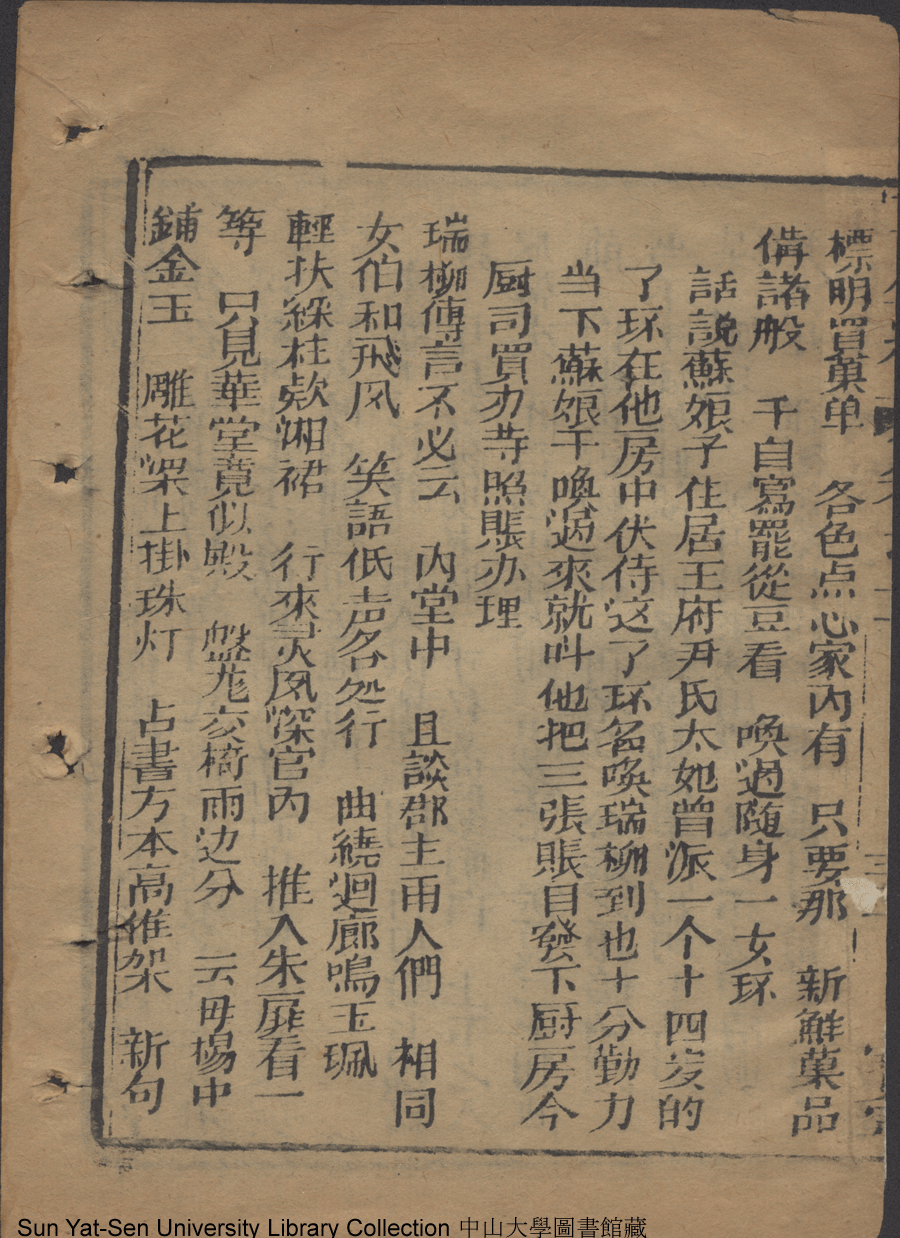 標明買菓单　各色点心家內有　只要那　新鮮菓品
俻諸般　千自寫罷從豆看　喚過随身一女环
話説蘇娘子住居王府尹氏太妃曾派一个十四岁的
了环在他房中伏侍这了环名喚瑞柳到也十分勤力
当下蘇娘子喚過來就呌他把三張賬目發下厨房令
厨司買办䓁照賬办理
瑞柳傳言不必云　內堂中　且談郡主兩人們　相同
女伯和飛凤　笑語低声各処行　曲繞迴廊鳴玉珮
輕扶綵柱欵湘裙　行來灵凤深宫內　推入朱扉看一
等　只見華堂竟似殿　盤龙交椅兩边分　云母榻中
鋪金玉　雕花梁上掛珠灯　占書方本高堆架　新句
Sun Yat-Sen University Library Collection 中山大學圖書館藏